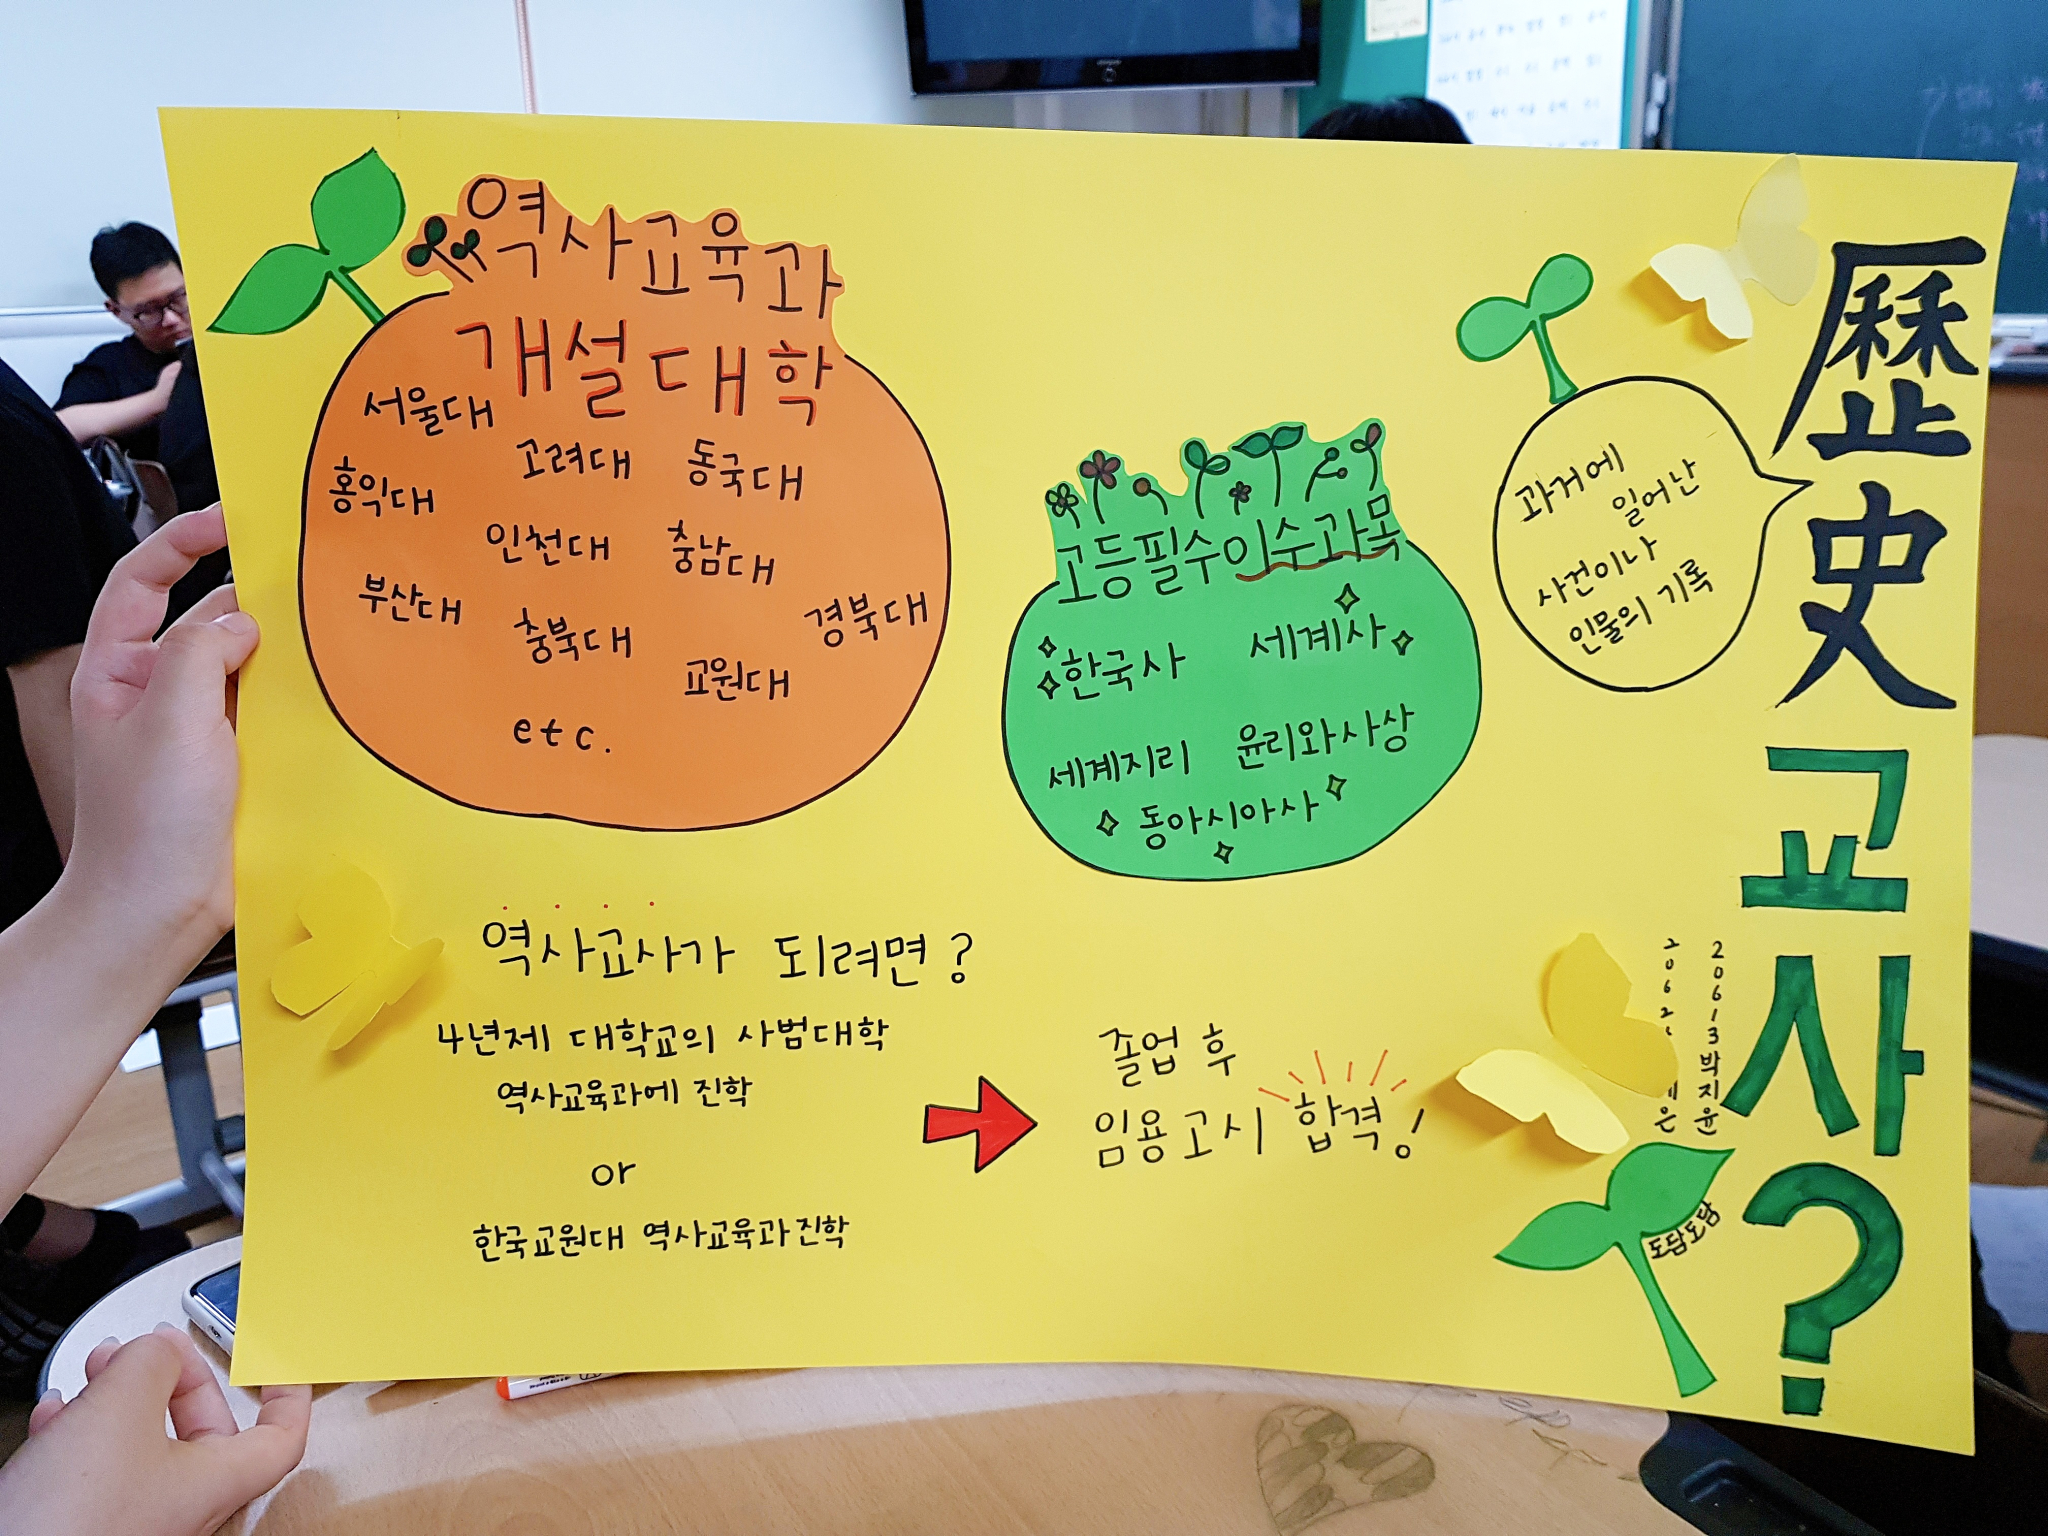 역사교육과
개설대학
서울대
고려대 동국대
홍익대
인천대 충남대
부산대 충북대 경북대
교원대
etc.
고등필수이수과목
한국사 세계사
세계지리 윤리와사상
동아시아사
과거에
일어난
사건이나
인물의 기록
歷史교사?
역사교사가 되려면?
4년제 대학교의 사범대학
역사교육과에 진학
or
한국교원대 역사교육과진학
졸업 후
임용고시 합격!
20613박지윤
도담도담